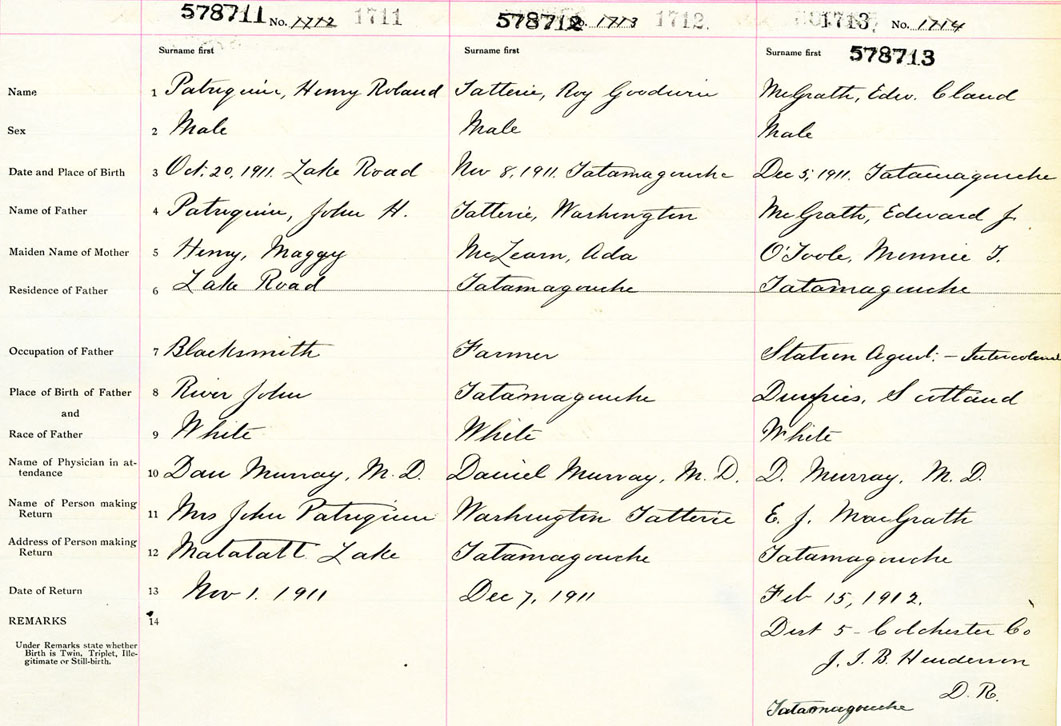 578711 No. 1712 1711 578712 No. 1713 1712. 1713, No. 1714
Surname first Surname first Surname first 578713
Name 1 Patriquin, Henry Roland Tattrie, Roy Goodwin McGrath, Edw. Claud
Sex 2 Male Male Male
Date and Place of Birth 3 Oct. 20, 1911. Lake Road Nov 8, 1911. Tatamagouche Dec 5, 1911. Tatamagouche
Name of Father 4 Patriquin, John H. Tattrie, Washington McGrath, Edward J.
Maiden Name of Mother 5 Henry, Maggy McLearn, Ada O'Toole, Minnie T.
Residence of Father 6 Lake Road Tatamagouche Tatamagouche
Occupation of Father 7 Blacksmith Farmer Station Agent. - Intercolonial
Place of Birth of Father 8 River John Tatamagouche Dumfries, Scotland
and
Race of Father 9 White White White
Name of Physician in at-
tendance 10 Dan Murray, M.D. Daniel Murray, M.D. D. Murray, M.D.
Name of Person making
Return 11 Mrs John Patriquin Washington Tattrie E. J. MacGrath
Address of Person making
Return 12 Matatatt Lake Tatamagouche Tatamagouche
Date of Return 13 Nov 1. 1911 Dec 7, 1911 Feb 15, 1912.
REMARKS 14 Dist 5 - Colchester Co
Under Remarks state whether
Birth is Twin, Triplet, Ille-
gitimate or Still-birth.
J. T. B. Henderson
D. R.
Tatamagouche